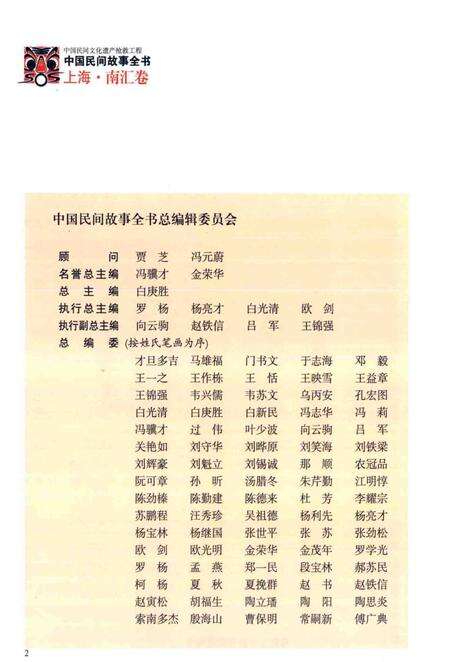 中国民间文化遗产抢救工程
中国民间故事全书
SOS 上海·南汇卷
中国民间故事全书总编辑委员会
顾 问 贾 芝 冯元蔚
名誉总主编 冯骥才 金荣华
总 主 编 白庚胜
执行总主编 罗 杨 杨亮才 白光清 欧 剑
执行副总主编 向云驹 赵铁信 吕 军 王锦强
总 编 委 (按姓氏笔画为序)
才旦多吉 马雄福 门书文 于志海 邓 毅
王一之 王作栋 王 恬 王映雪 王益章
王锦强 韦兴儒 韦苏文 乌丙安 孔宏图
白光清 白庚胜 白新民 冯志华 冯 莉
冯骥才 过 伟 叶少波 向云驹 吕 军
关艳如 刘守华 刘晔原 刘笑海 刘铁梁
刘辉豪 刘魁立 刘锡诚 那 顺 农冠品
阮可章 孙 昕 汤腊冬 朱芹勤 江明惇
陈劲榛 陈勤建 陈德来 杜 芳 李耀宗
苏鹏程 汪秀珍 吴祖德 杨利先 杨亮才
杨宝林 杨继国 张世平 张 苏 张劲松
欧 剑 欧光明 金荣华 金茂年 罗学光
罗 杨 孟 燕 郑一民 段宝林 郝苏民
柯 杨 夏 秋 夏挽群 赵 书 赵铁信
赵寅松 胡福生 陶立璠 陶 阳 陶思炎
索南多杰 殷海山 曹保明 常嗣新 傅广典
2